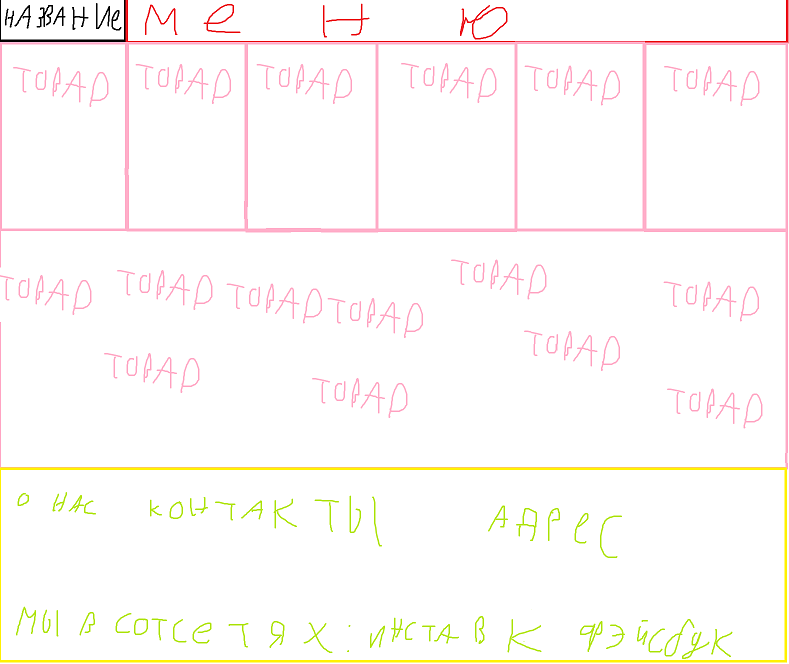 НАЗВАНИе МеНЮ
ТОВАР ТОВАР ТОВАР ТОВАР ТОВАР ТОВАР
ТОВАР ТОВАР ТОВАР ТОВАР ТОВАР ТОВАР
ТОВАР ТОВАР ТОВАР ТОВАР
О НАС КОНТАКТЫ АДРеС
МЫ В СОТСеТЯХ: ИНСТА ВК ФЭЙСбУК